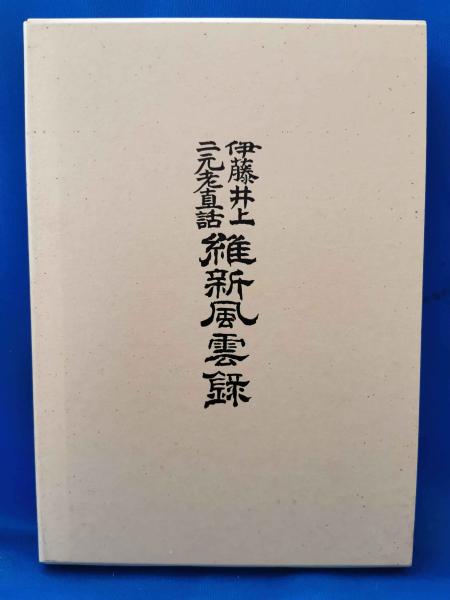 伊藤井上
二元老直話
維新風雲録